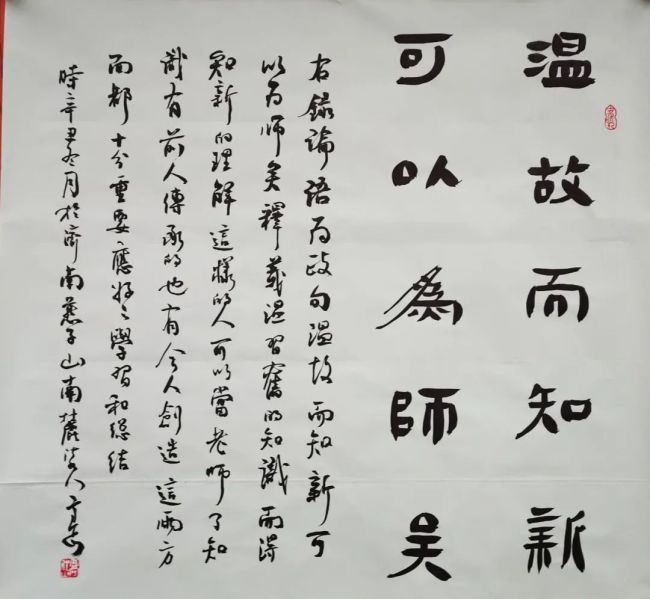 温故而知新
可以為師矣
右錄論語為政句溫故而知新可
以為師矣釋義溫習舊的知識而得
知新的理解這樣的人可以當老師了知
識有前人傳承的也有今人創造這兩方
面都十分重要應好之學習和總結
時辛丑冬月於濟南燕子山南麓